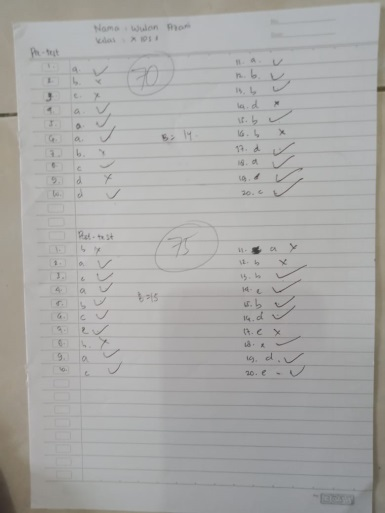 Nama : Wulan
Kelas : X
Pre-test
1. a. ✓
2. b. x
3. c. x
4. a. ✓
5. a. ✓
6. a. ✓
7. b. x
8. c ✓
9. d x
10. d ✓
70
B = 14
11. a. ✓
12. b. ✓
13. b ✓
14. d x
15. b ✓
16. b x
17. d ✓
18. a ✓
19. ✓
20. c ✓
Post-test
1. b x
2. a ✓
3. c ✓
4. a ✓
5. b ✓
6. c ✓
7. e ✓
8. b. x
9. a ✓
10. c ✓
75
B = 15
11. a x
12. b x
13. b ✓
14. c ✓
15. b ✓
16. d ✓
17. e x
18. a ✓
19. d. ✓
20. e - ✓